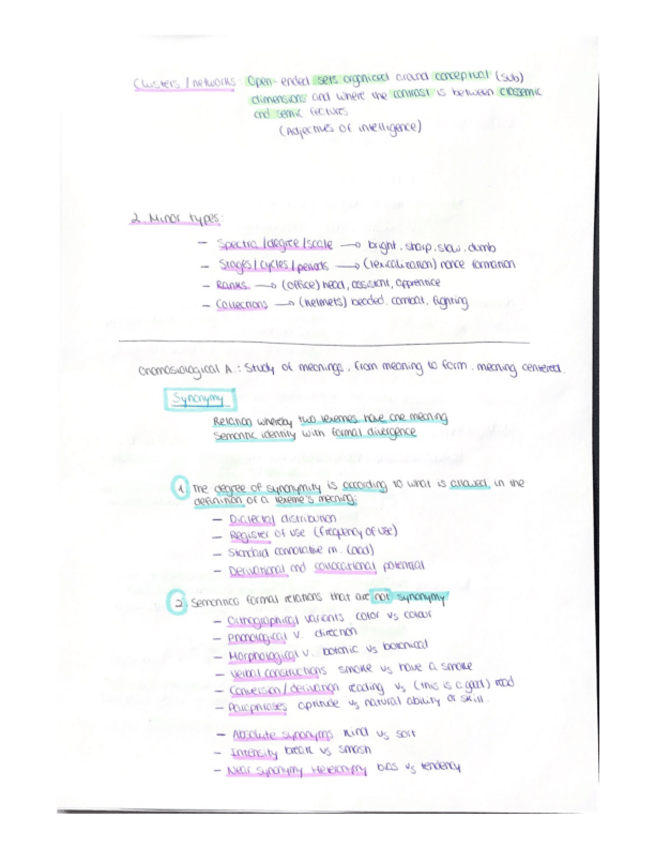 Clusters / networks: Open-ended sets organized around conceptual (sub)
dimensions and where the contrast is between classemic
and semic features
(Adjectives of intelligence)
2. Minor types:
- Spectra / degree / scale → bright, sharp, slow, dumb
- Stages / cycles / periods → (lexicalization) nonce formation
- Ranks → (office) head, assistant, apprentice
- Collections → (helmets) beaded, combat, fighting
Onomasiological A.: Study of meanings, from meaning to form, meaning centered.
Synonymy
Relation whereby two lexemes have one meaning
Semantic identity with formal divergence
1. The degree of synonymity is according to what is allowed in the
definition of a lexeme's meaning:
- Dialectal distribution
- Register of use (frequency of use)
- Standard connotative m.
- Derivational and collocational potential
2. Semantico formal relations that are not synonymy
- Orthographical variants color vs colour
- Phonological v. direction
- Morphological v. botanic vs botanical
- Verbal constructions smoke vs have a smoke
- Conversion / derivation reading vs (this is a good) read
- Paraphrases aptitude vs natural ability or skill.
- Absolute synonyms kind vs sort
- Intensity break vs smash
- Near synonymy Heteronymy bias vs tendency